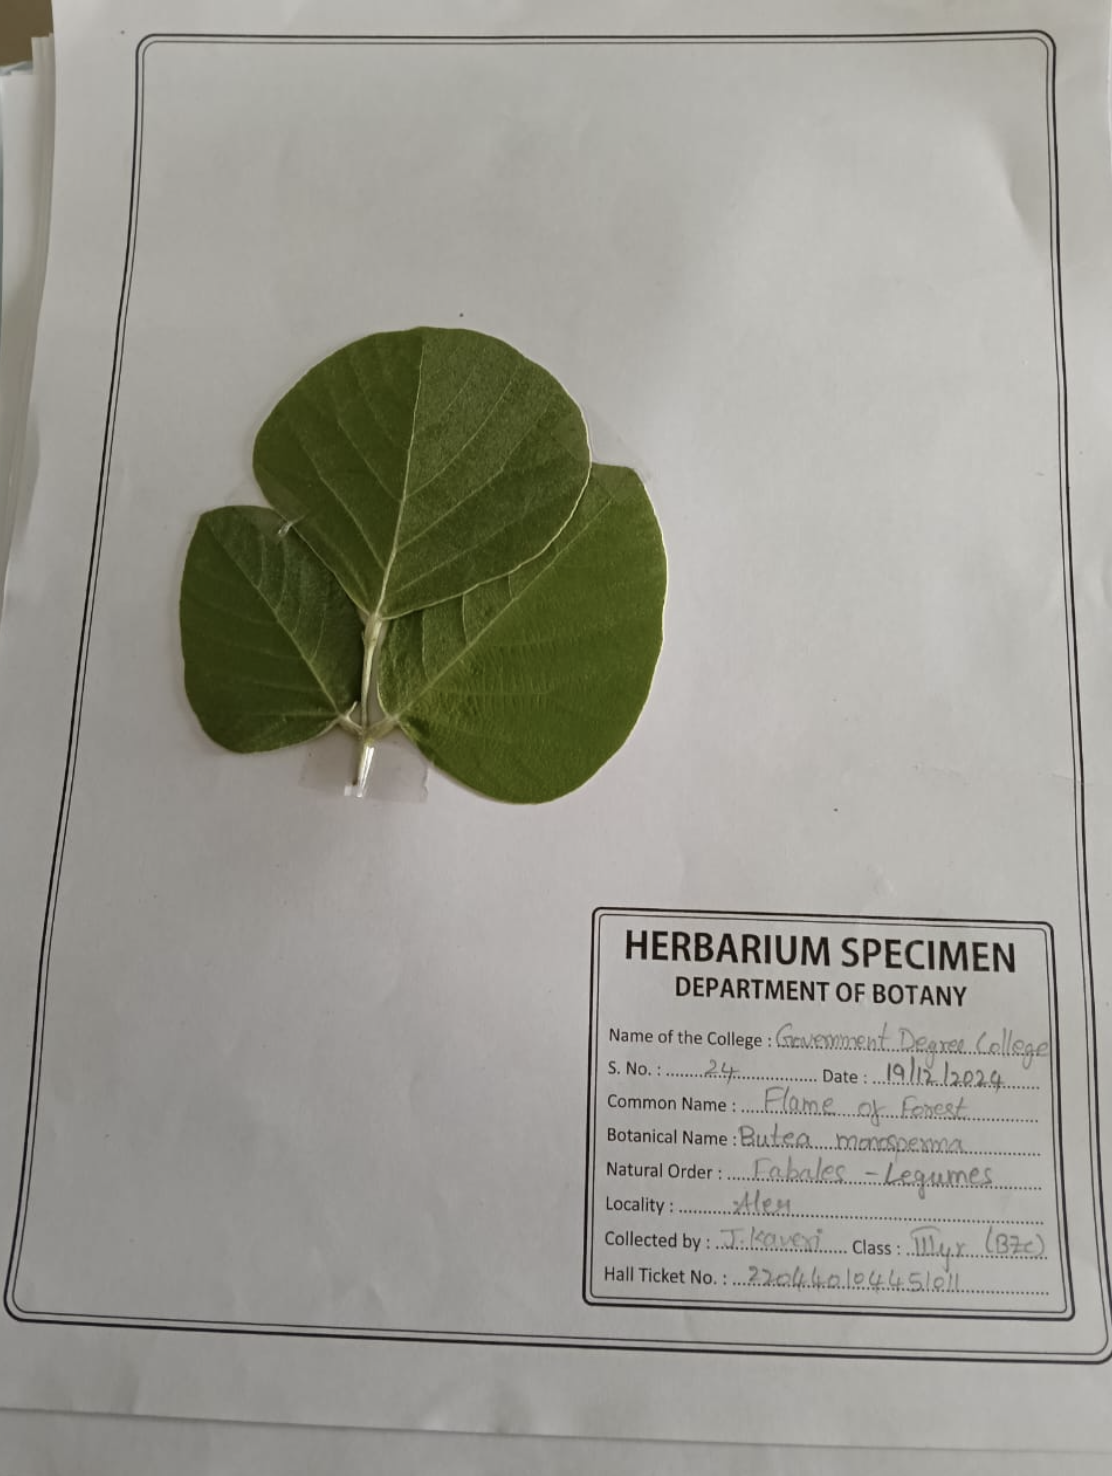 HERBARIUM SPECIMEN
DEPARTMENT OF BOTANY
Name of the College : Government Degree College
S. No. : 24 Date : 19/12/2024
Common Name : Flame of Forest
Botanical Name : Butea monosperma
Natural Order : Fabales - Legumes
Locality : Aler
Collected by : J. Kaveri Class : III yr (BZC)
Hall Ticket No. : 220440104451011